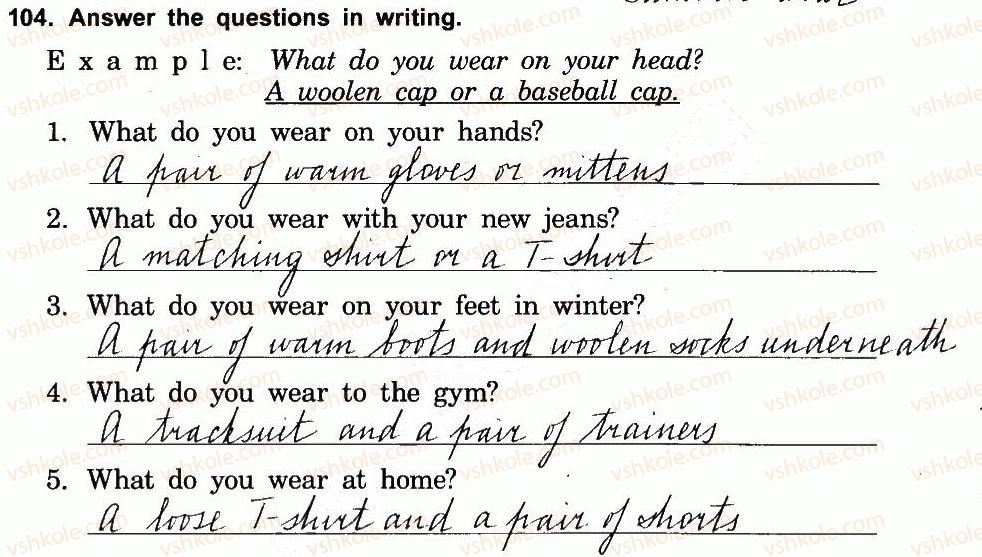 104. Answer the questions in writing.
Example: What do you wear on your head?
A woolen cap or a baseball cap.
1. What do you wear on your hands?
A pair of warm gloves or mittens
2. What do you wear with your new jeans?
A matching shirt or a T-shirt
3. What do you wear on your feet in winter?
A pair of warm boots and woolen socks underneath
4. What do you wear to the gym?
A tracksuit and a pair of trainers
5. What do you wear at home?
A loose T-shirt and a pair of shorts